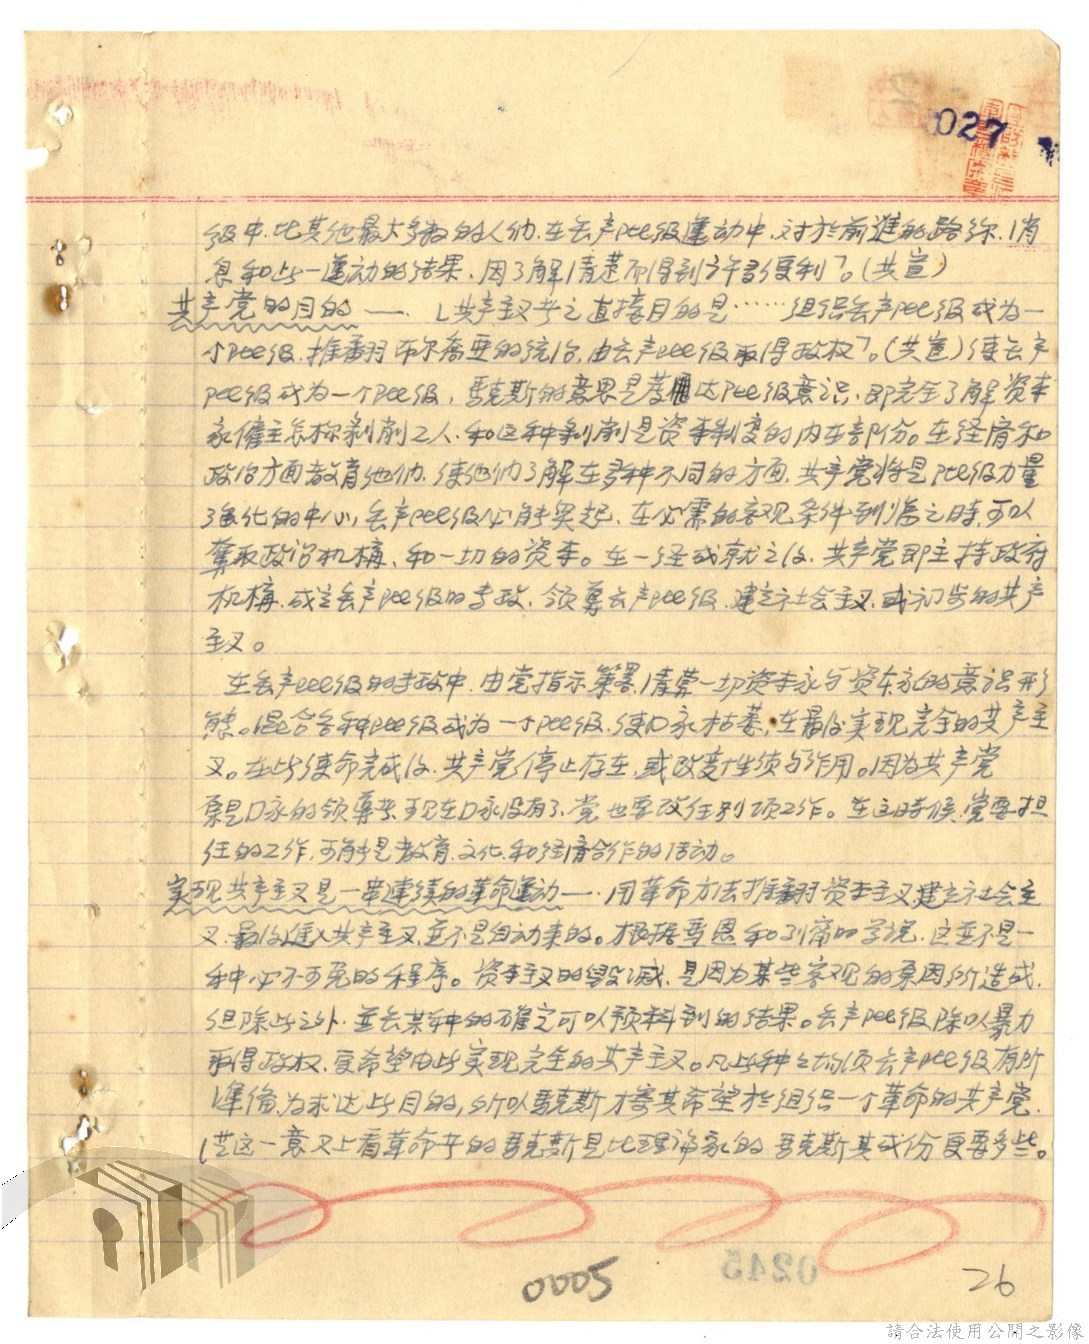 027
级中.比其他最大多数的人们.在无产pee级運动中.对於前進的路线.消
息和此一運动的结果.因了解清楚而得到许多便利⌉。(共宣)
共产党的目的——.⌊共产主义者之直接目的是……组织无产pee级成为一
个pee级.推翻布尔喬亚的统治.由无产pee级取得政权⌉。(共宣)使无产
pee级成为一个pee级,馬克斯的意思是发達pee级意识.即完全了解资本
家僱主怎样剥削工人.和这种剥削是资本制度的内在部份。在经济和
政治方面教育他们.使他们了解在多种不同的方面.共产党将是pee级力量
强化的中心,无产pee级必能兴起.在必需的客观条件到临之時.可以
奪取政治机構.和一切的资本。在一经成就之後.共产党即主持政府
机構.成立无产pee级的专政.领導无产pee级.建立社会主义.或初步的共产
主义。
在无产pee级的专政中.由党指示策畧.清算一切资本家与资本家的意识形
態。混合各种pee级成为一个pee级.使囗家枯萎.在最後实现完全的共产主
义。在此使命完成後.共产党停止存在.或改变性质与作用。因为共产党
原是囗家的领導者.现在囗家没有了.党也要改任别项工作。在这時候.党要担
任的工作.可能是教育.文化.和经济合作的活动。
实现共产主义是一串連续的革命運动——.用革命方法推翻资本主义.建立社会主
义.最後進入共产主义.並不是自动来的。根据馬恩和列痛的学说.这並不是一
种必不可免的程序。资本主义的毁滅.是因为某些客观的原因所造成.
但除此之外.並无某种的確定可以预料到的结果。无产pee级除以暴力
取得政权.更希望由此实现完全的共产主义。凡此种之均须无产pee级有所
準備.为求达此目的,所以馬克斯才寄其希望於组织一个革命的共产党.
従这一意义上看革命者的馬克斯是比理论家的馬克斯其成份更要多些。
0005
0245
26
請合法使用公開之影像